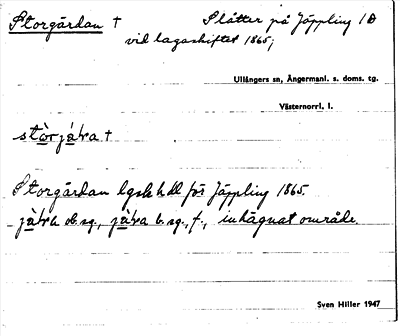 Storgårdan † Slåtter på Jäppling 1 D
vid lagaskiftet 1865;
Ullångers sn, Ångermanl. s. doms. tg.
Västernorrl. l.
stòrjàra †
Storgårdan lgsk hdl för Jäppling 1865
jàra ob.sg., jàra b.sg., f., inhägnat område.
Sven Hiller 1947